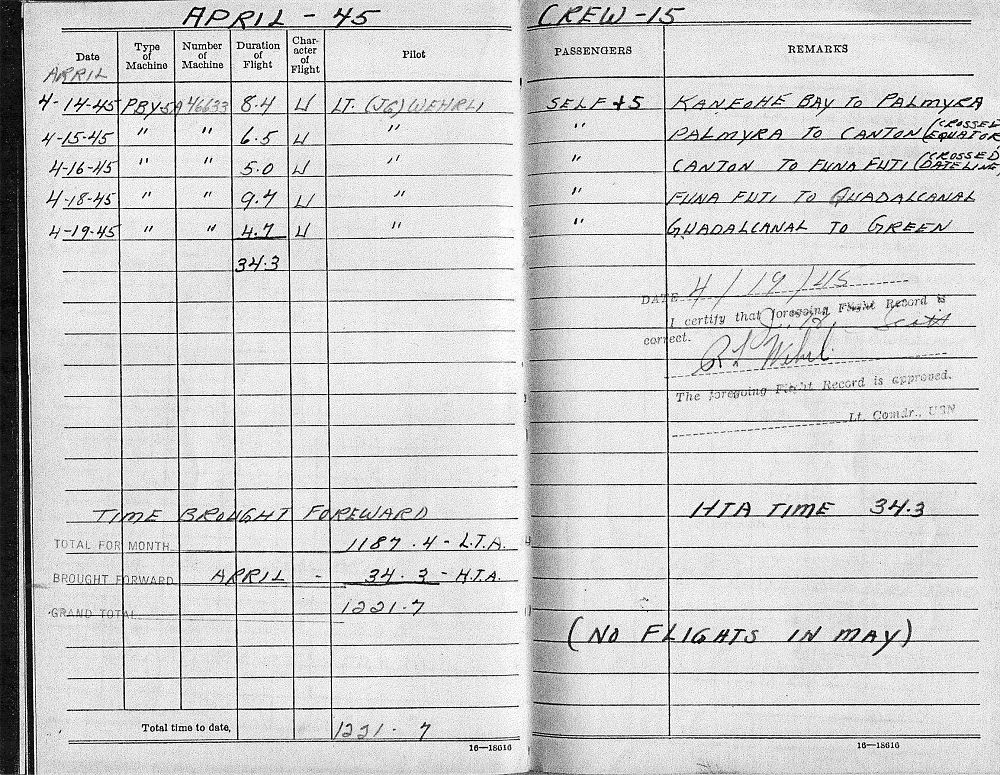 APRIL - 45
Date Type of Machine Number of Machine Duration of Flight Char- acter of Flight Pilot
APRIL
4-14-45 PBY-5A 46633 8.4 U LT. (JG) WEHRLI
4-15-45 " " 6.5 U "
4-16-45 " " 5.0 U
4-18-45 " " 9.7 U "
4-19-45 " " 4.7 U "
34.3
TIME BROUGHT FOREWARD
TOTAL FOR MONTH 1187.4 - L.T.A.
BROUGHT FORWARD APRIL - 34.3 - H.T.A.
GRAND TOTAL 1221.7
Total time to date, 1221.7
16—18616
CREW - 15
PASSENGERS REMARKS
SELF +5 KANEOHE BAY TO PALMYRA
" PALMYRA TO CANTON (CROSSED EQUATOR
" CANTON TO FUNA FUTI (CROSSED DATE LINE)
" FUNA FUTI TO GUADALCANAL
" GUADALCANAL TO GREEN
DATE 4/19/45
I certify that foregoing Flight Record is
correct.
The foregoing Flight Record is approved.
Lt. Comdr., USN
HTA TIME 34.3
(NO FLIGHTS IN MAY)
16—18616